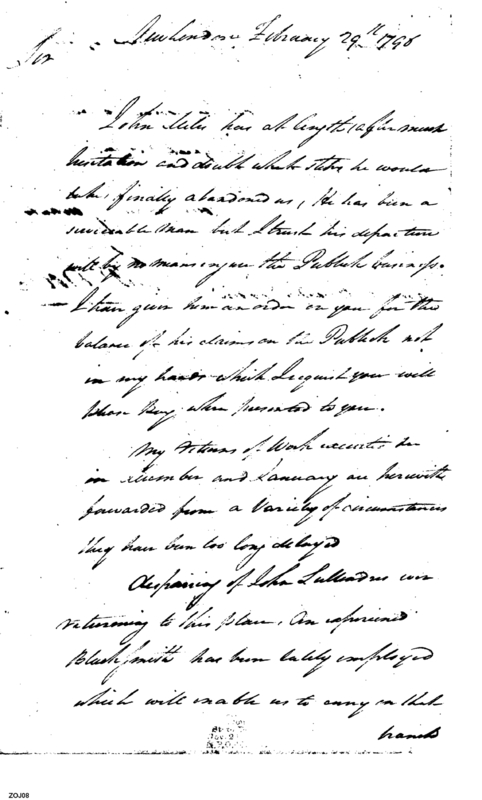 New London February 29th 1796
Sir
John Miles has at length (after much
hesitation and doubt which steps he would
take, finally abandoned us, He has been a
serviceable man but I trust his departure
will by no means injure the Publick business.
I have given him an order on you for the
balance of his claims on the Publick not
in my hands which I request you will
please Pay when presented to you.
My returns of Work executed
in December and January are herewith
forwarded from a Variety of circumstances
they have been too long delayed
despairing of John ever
returning to this place, An experienced
Black Smith has been lately employed
which will enable us to carry on that
branch
ZOJ08